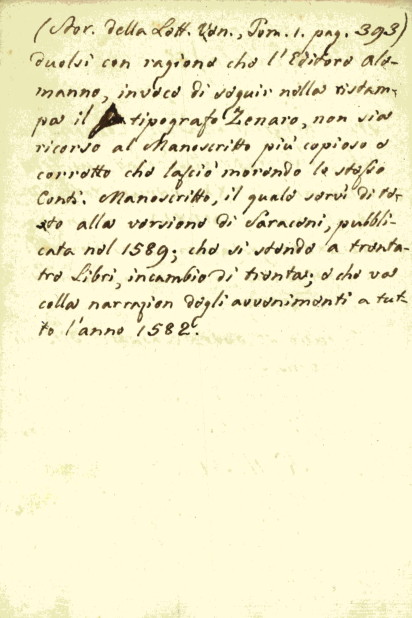 (Stor. della Lett. Ven., Tom. 1. pag. 393)
duolsi con ragione che l'Editore Ale-
manno, invece di seguir nella ristam-
pa il tipografo Zenaro, non sia
ricorso al Manoscritto più copioso e
corretto che lasciò morendo lo stesso
Conti. Manoscritto, il quale servì di te-
sto alla versione di Saraceni, pubbli-
cata nel 1589; che si stende a trenta-
tre Libri, incambio di trenta; e che va
colla narrazion degli avvenimenti a tut-
to l'anno 1582.